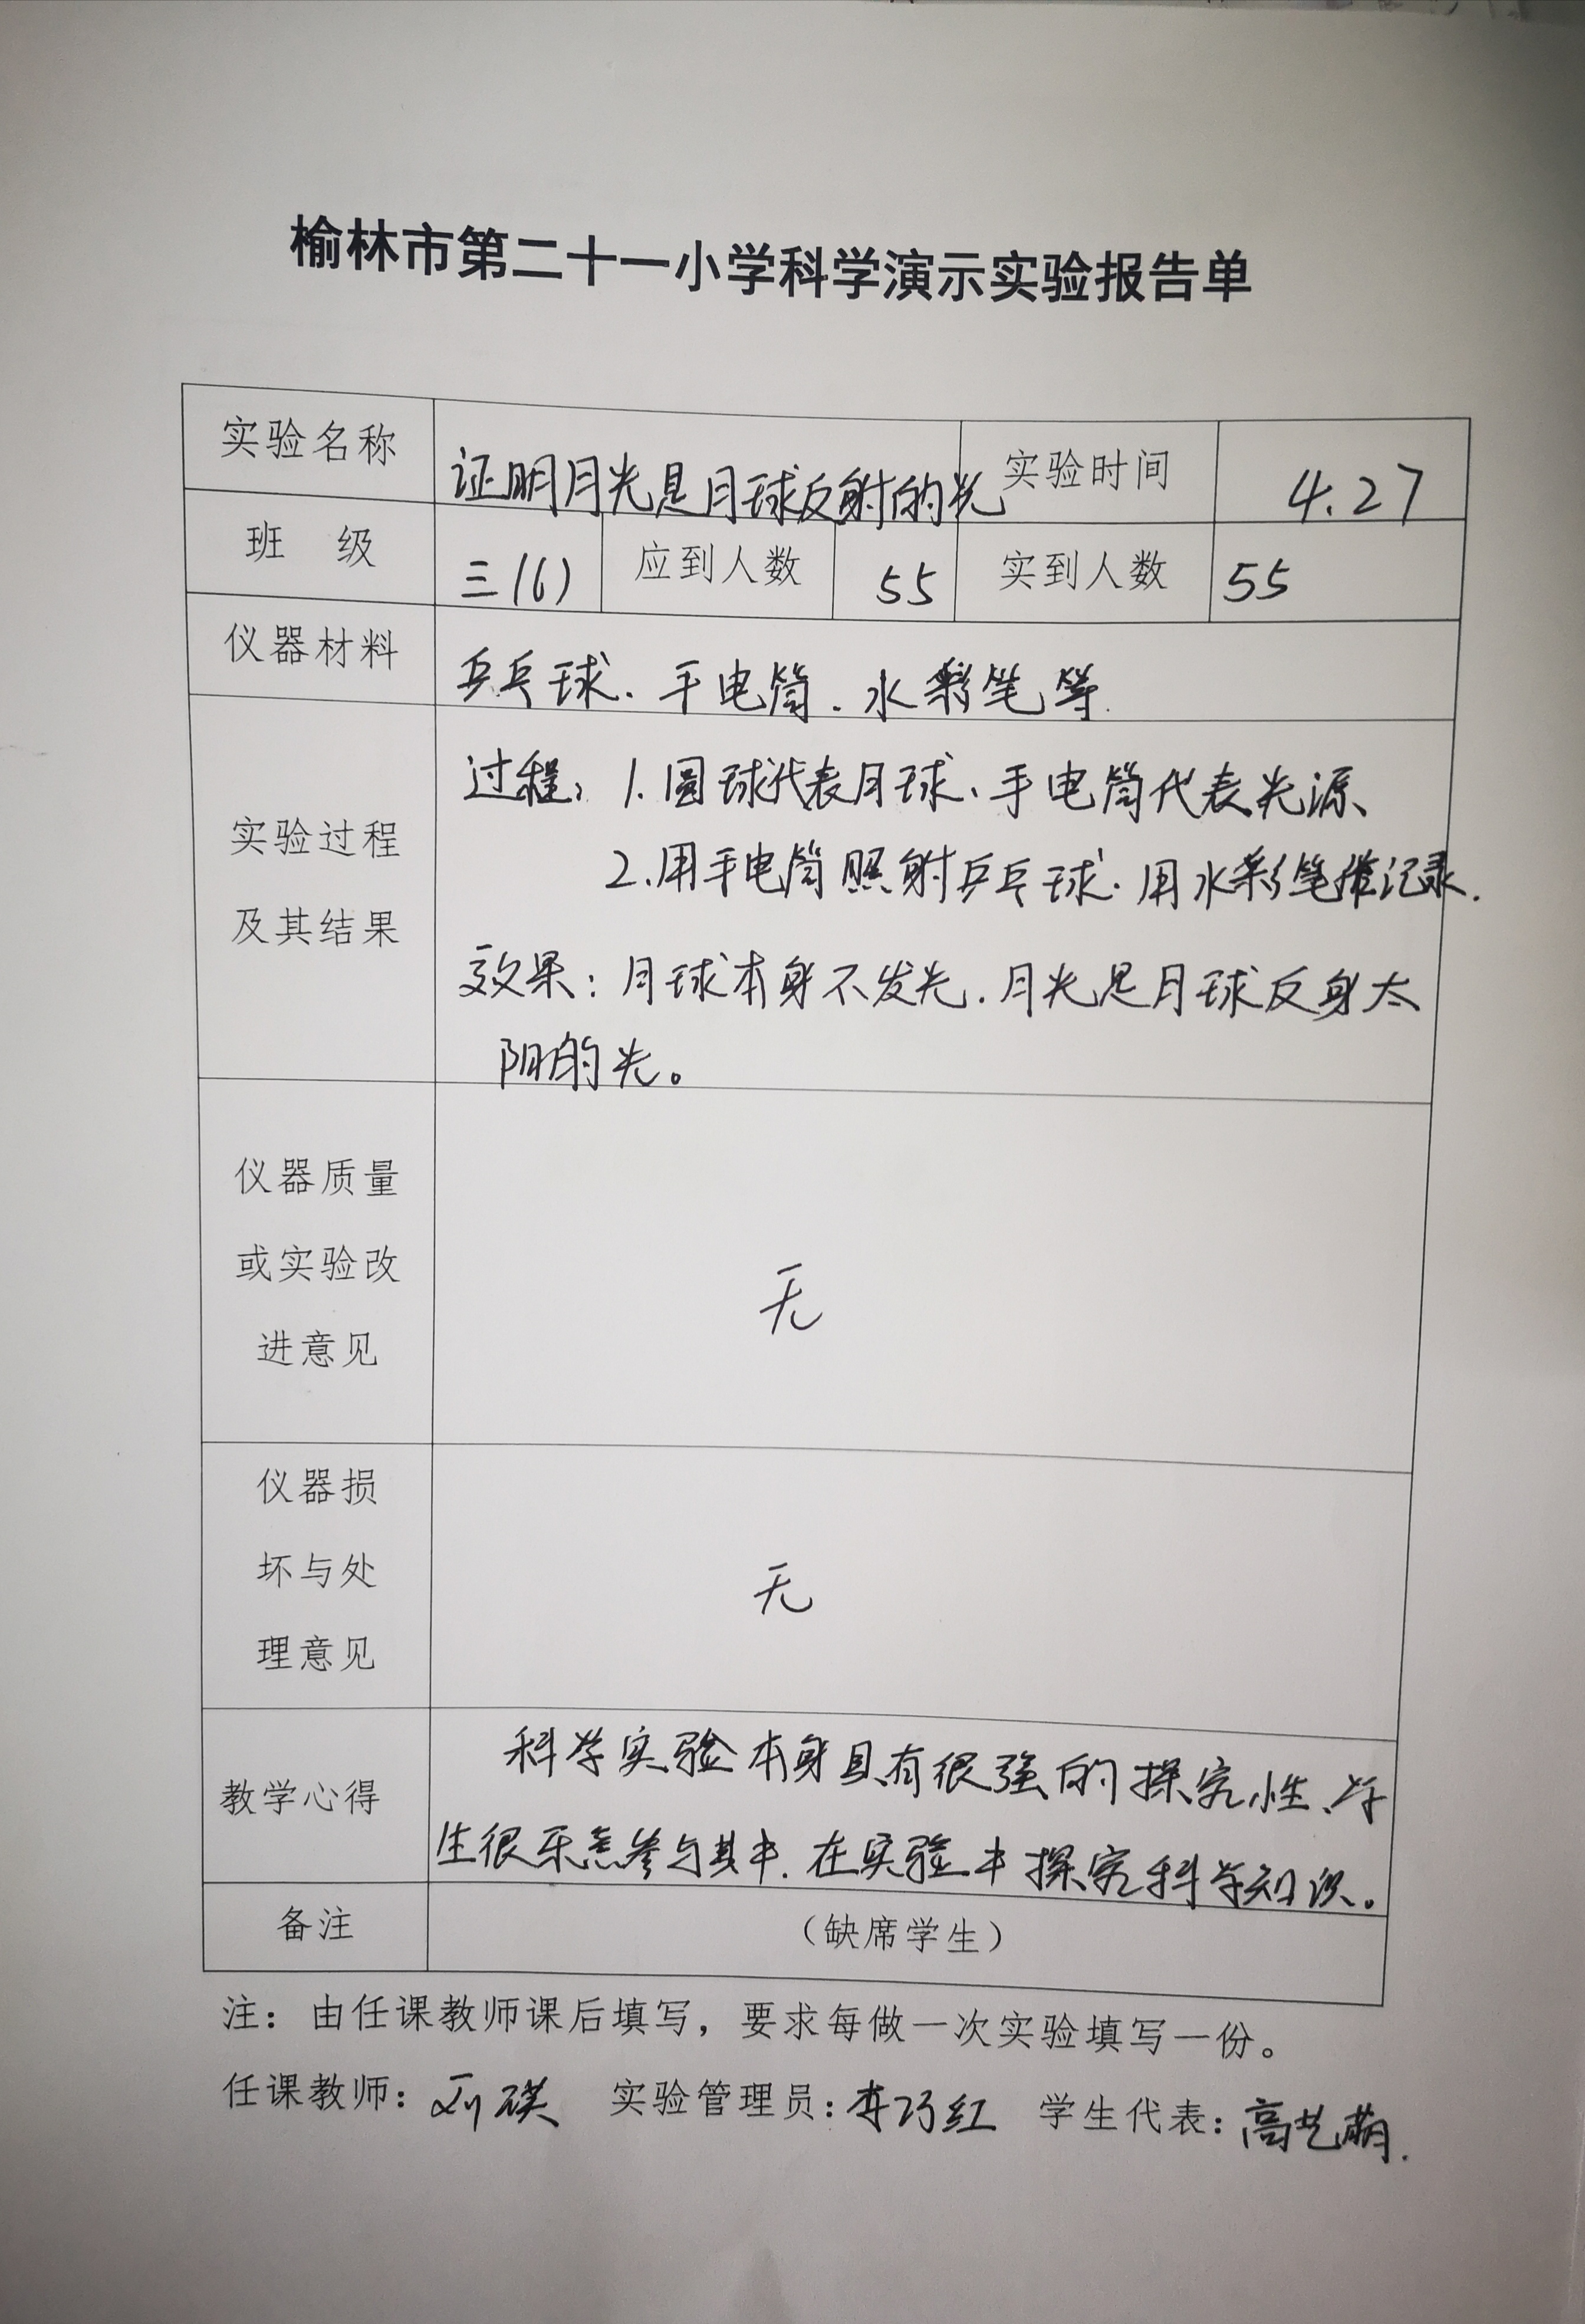 榆林市第二十一小学科学演示实验报告单
实验名称 证明月光是月球反射的光 实验时间 4.27
班 级 三(6) 应到人数 55 实到人数 55
仪器材料 乒乓球、手电筒、水彩笔等.
实验过程
及其结果
过程: 1.圆球代表月球、手电筒代表光源、
2.用手电筒照射乒乓球.用水彩笔 记录.
效果:月球本身不发光.月光是月球反身太
阳的光。
仪器质量
或实验改
进意见
无
仪器损
坏与处
理意见
无
教学心得
科学实验本身具有很强的探究性、学
生很乐意参与其中.在实验中探究科学知识。
备注 (缺席学生)
注：由任课教师课后填写，要求每做一次实验填写一份。
任课教师：刘 实验管理员：李巧红 学生代表：高艺萌.